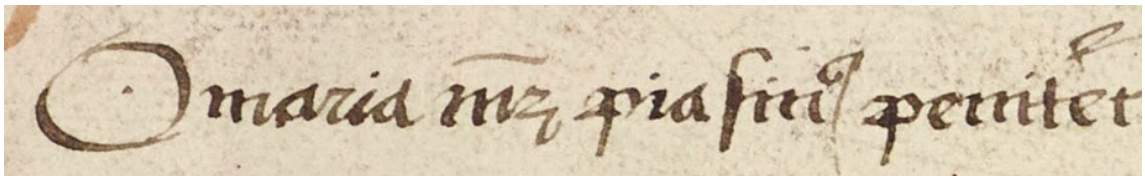 O maria mr̄ pia sinꝰ penitēt